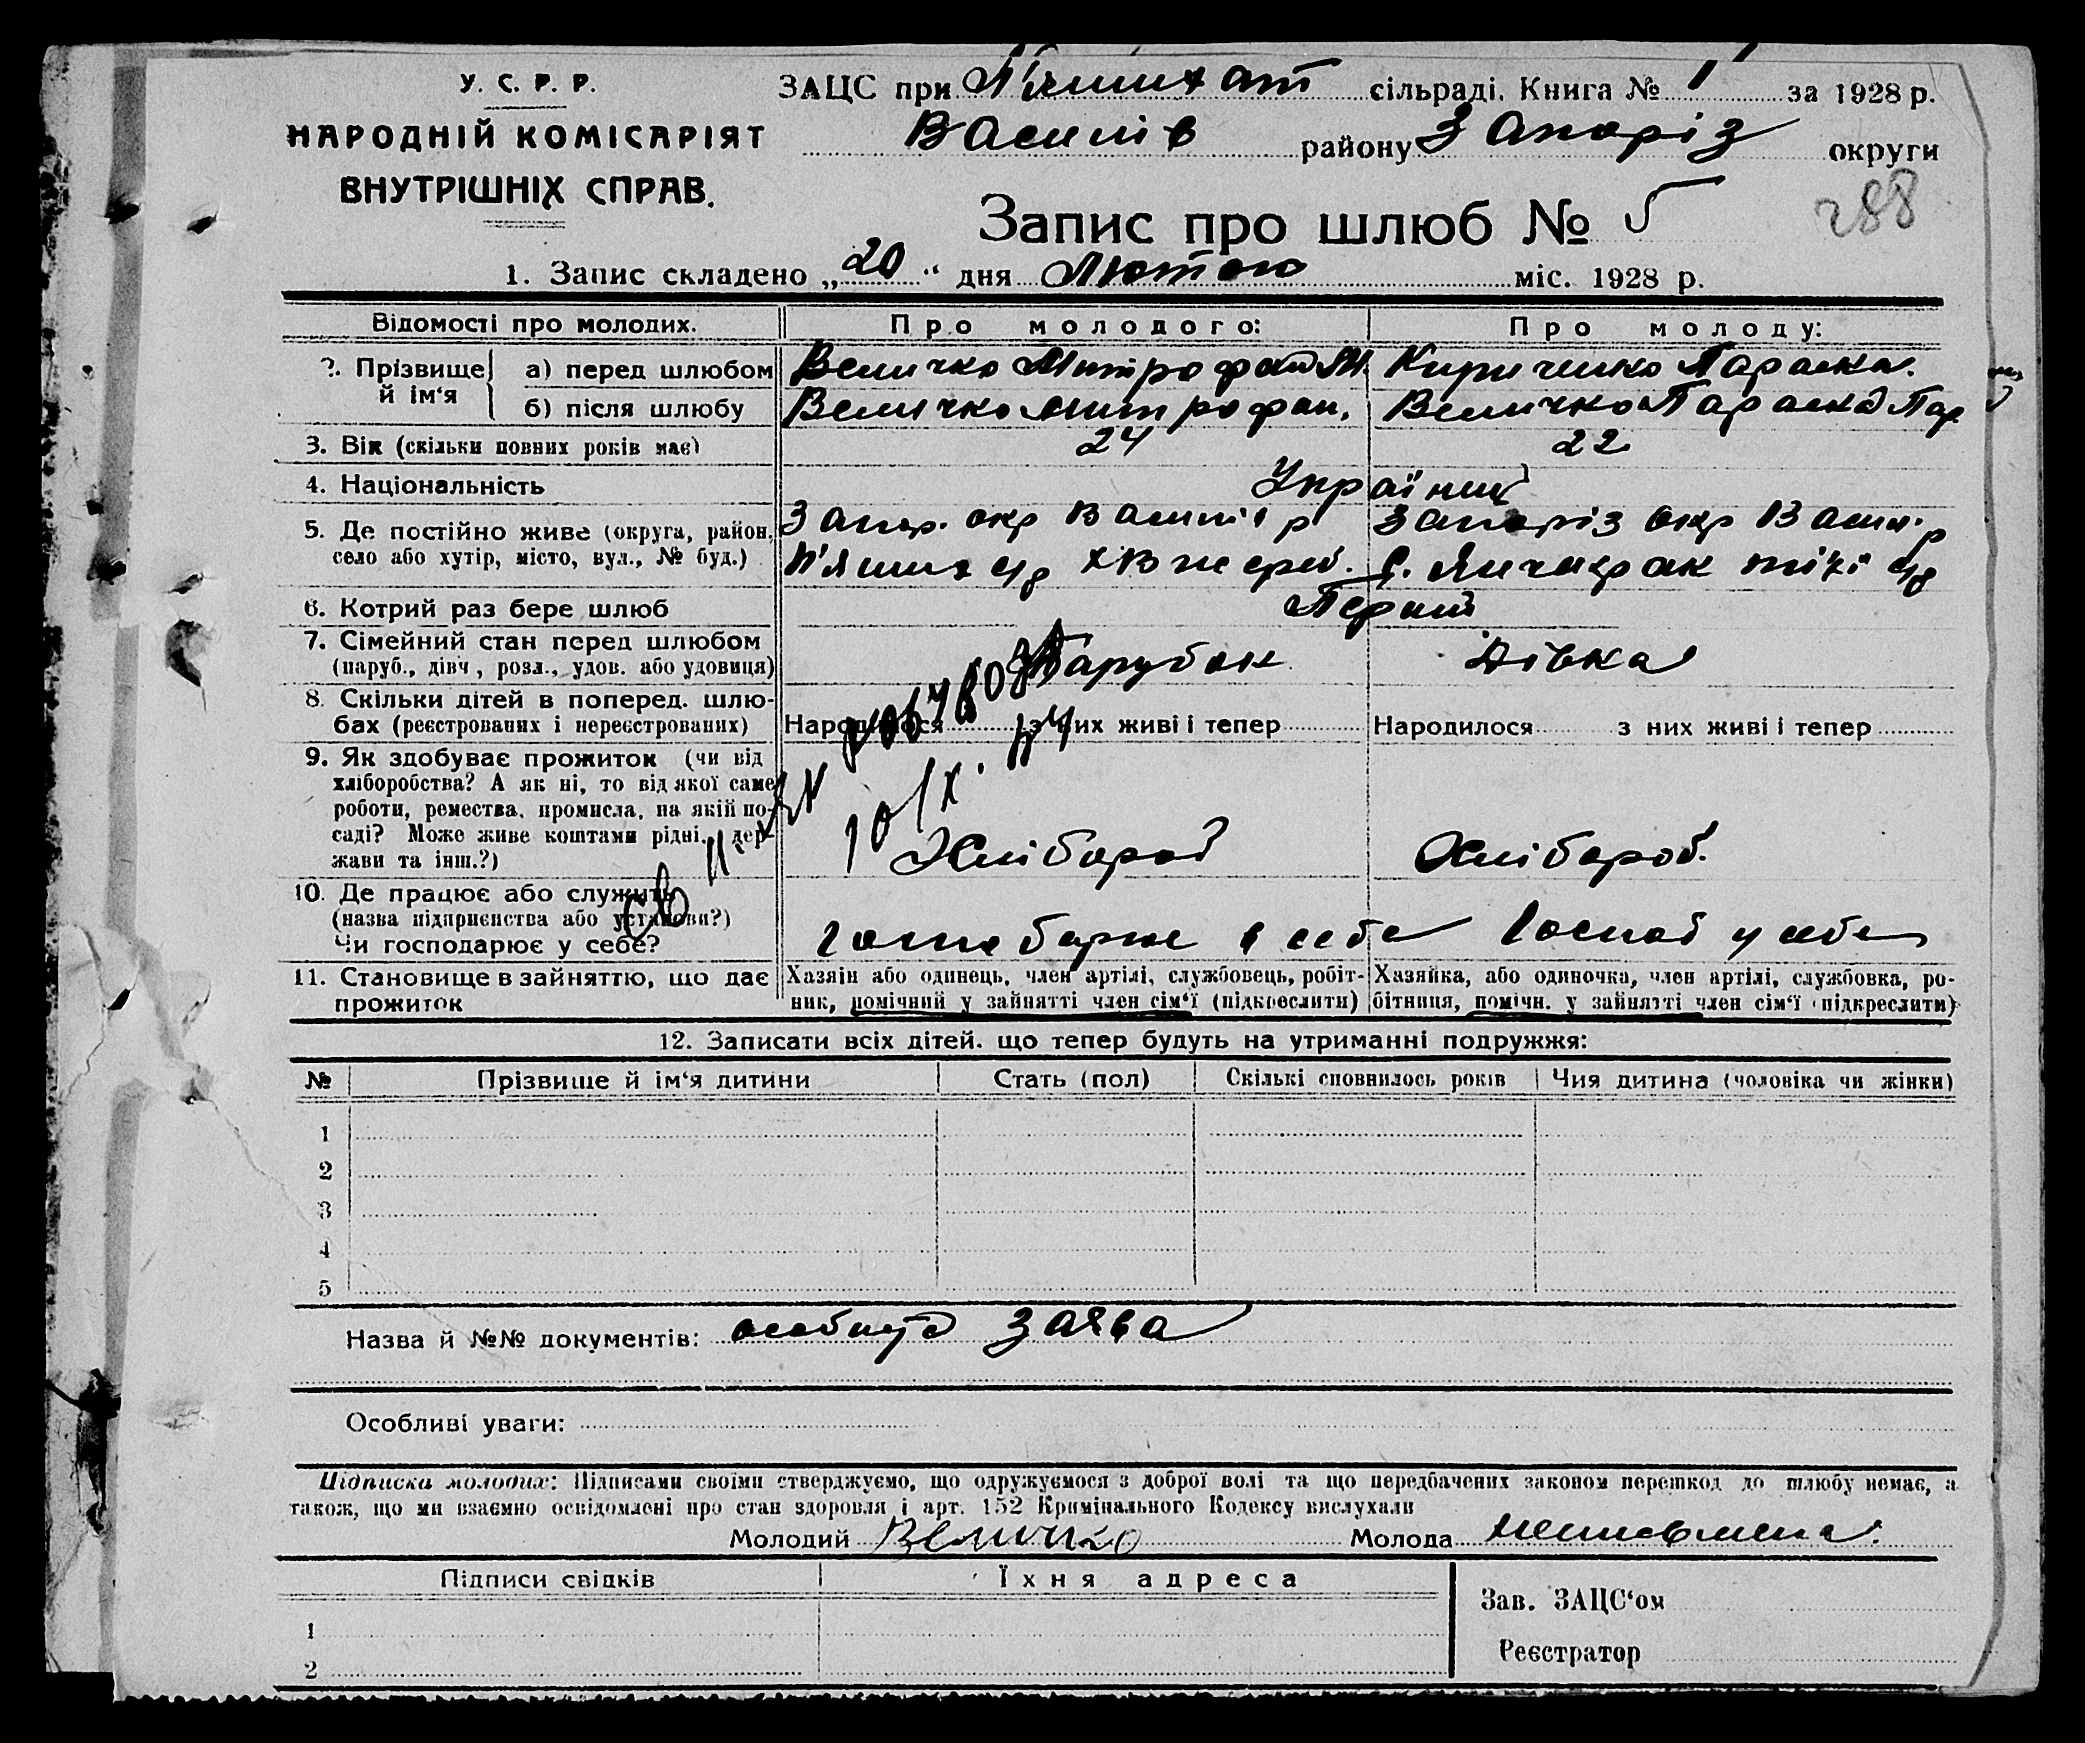 У. С. Р. Р.
НАРОДНІЙ КОМІСАРІЯТ
ВНУТРІШНІХ СПРАВ.
ЗАЦС при П'яшихат сільраді. Книга № 1 за 1928 р.
Василів району Запоріз округи
288
Запис про шлюб № 5
1. Запис складено „20“ дня Лютого міс. 1928 р.
Відомості про молодих. Про молодого: Про молоду:
2. Прізвище й ім'я а) перед шлюбом Величко Митрофан М. Кириченко Параска.
б) після шлюбу Величко Митрофан. Величко Параска Пар
3. Вік (скільки повних років має) 24 22
4. Національність Українці
5. Де постійно живе (округа, район, Запор. окр Василів р Запоріз окр Васил. р
село або хутір, місто, вул., № буд.) с. Янчикрак
6. Котрий раз бере шлюб Перший
7. Сімейний стан перед шлюбом Парубок Дівка
(паруб., дівч., розл., удов. або удовиця)
8. Скільки дітей в поперед. шлю-
бах (реєстрованих і нереєстрованих) Народилося з них живі і тепер Народилося з них живі і тепер
9. Як здобуває прожиток (чи від
хліборобства? А як ні, то від якої саме
роботи, ремества, промисла, на якій по-
саді? Може живе коштами рідні, дер-
жави та інш.?) Хлібороб Хлібороб.
10/X
10. Де працює або служить
(назва підприємства або установи?)
Чи господарює у себе? в себе Господ у себе
11. Становище в зайняттю, що дає Хазяїн або одинець, член артілі, службовець, робіт- Хазяйка, або одиночка, член артілі, службовка, ро-
прожиток ник, помічний у зайнятті член сім'ї (підкреслити) бітниця, помічн. у зайнятті член сім'ї (підкреслити)
12. Записати всіх дітей, що тепер будуть на утриманні подружжя:
№ Прізвище й ім'я дитини Стать (пол) Скількі сповнилось років Чия дитина (чоловіка чи жінки)
1
2
3
4
5
Назва й №№ документів: особиста заява
Особливі уваги:
Підписка молодих: Підписами своїми стверджуємо, що одружуємося з доброї волі та що передбачених законом перешкод до шлюбу немає, а
також, що ми взаємно освідомлені про стан здоровля і арт. 152 Кримінального Кодексу вислухали
Молодий Величко Молода неписьмена.
Підписи свідків Їхня адреса
Зав. ЗАЦС'ом
1
Реєстратор
2